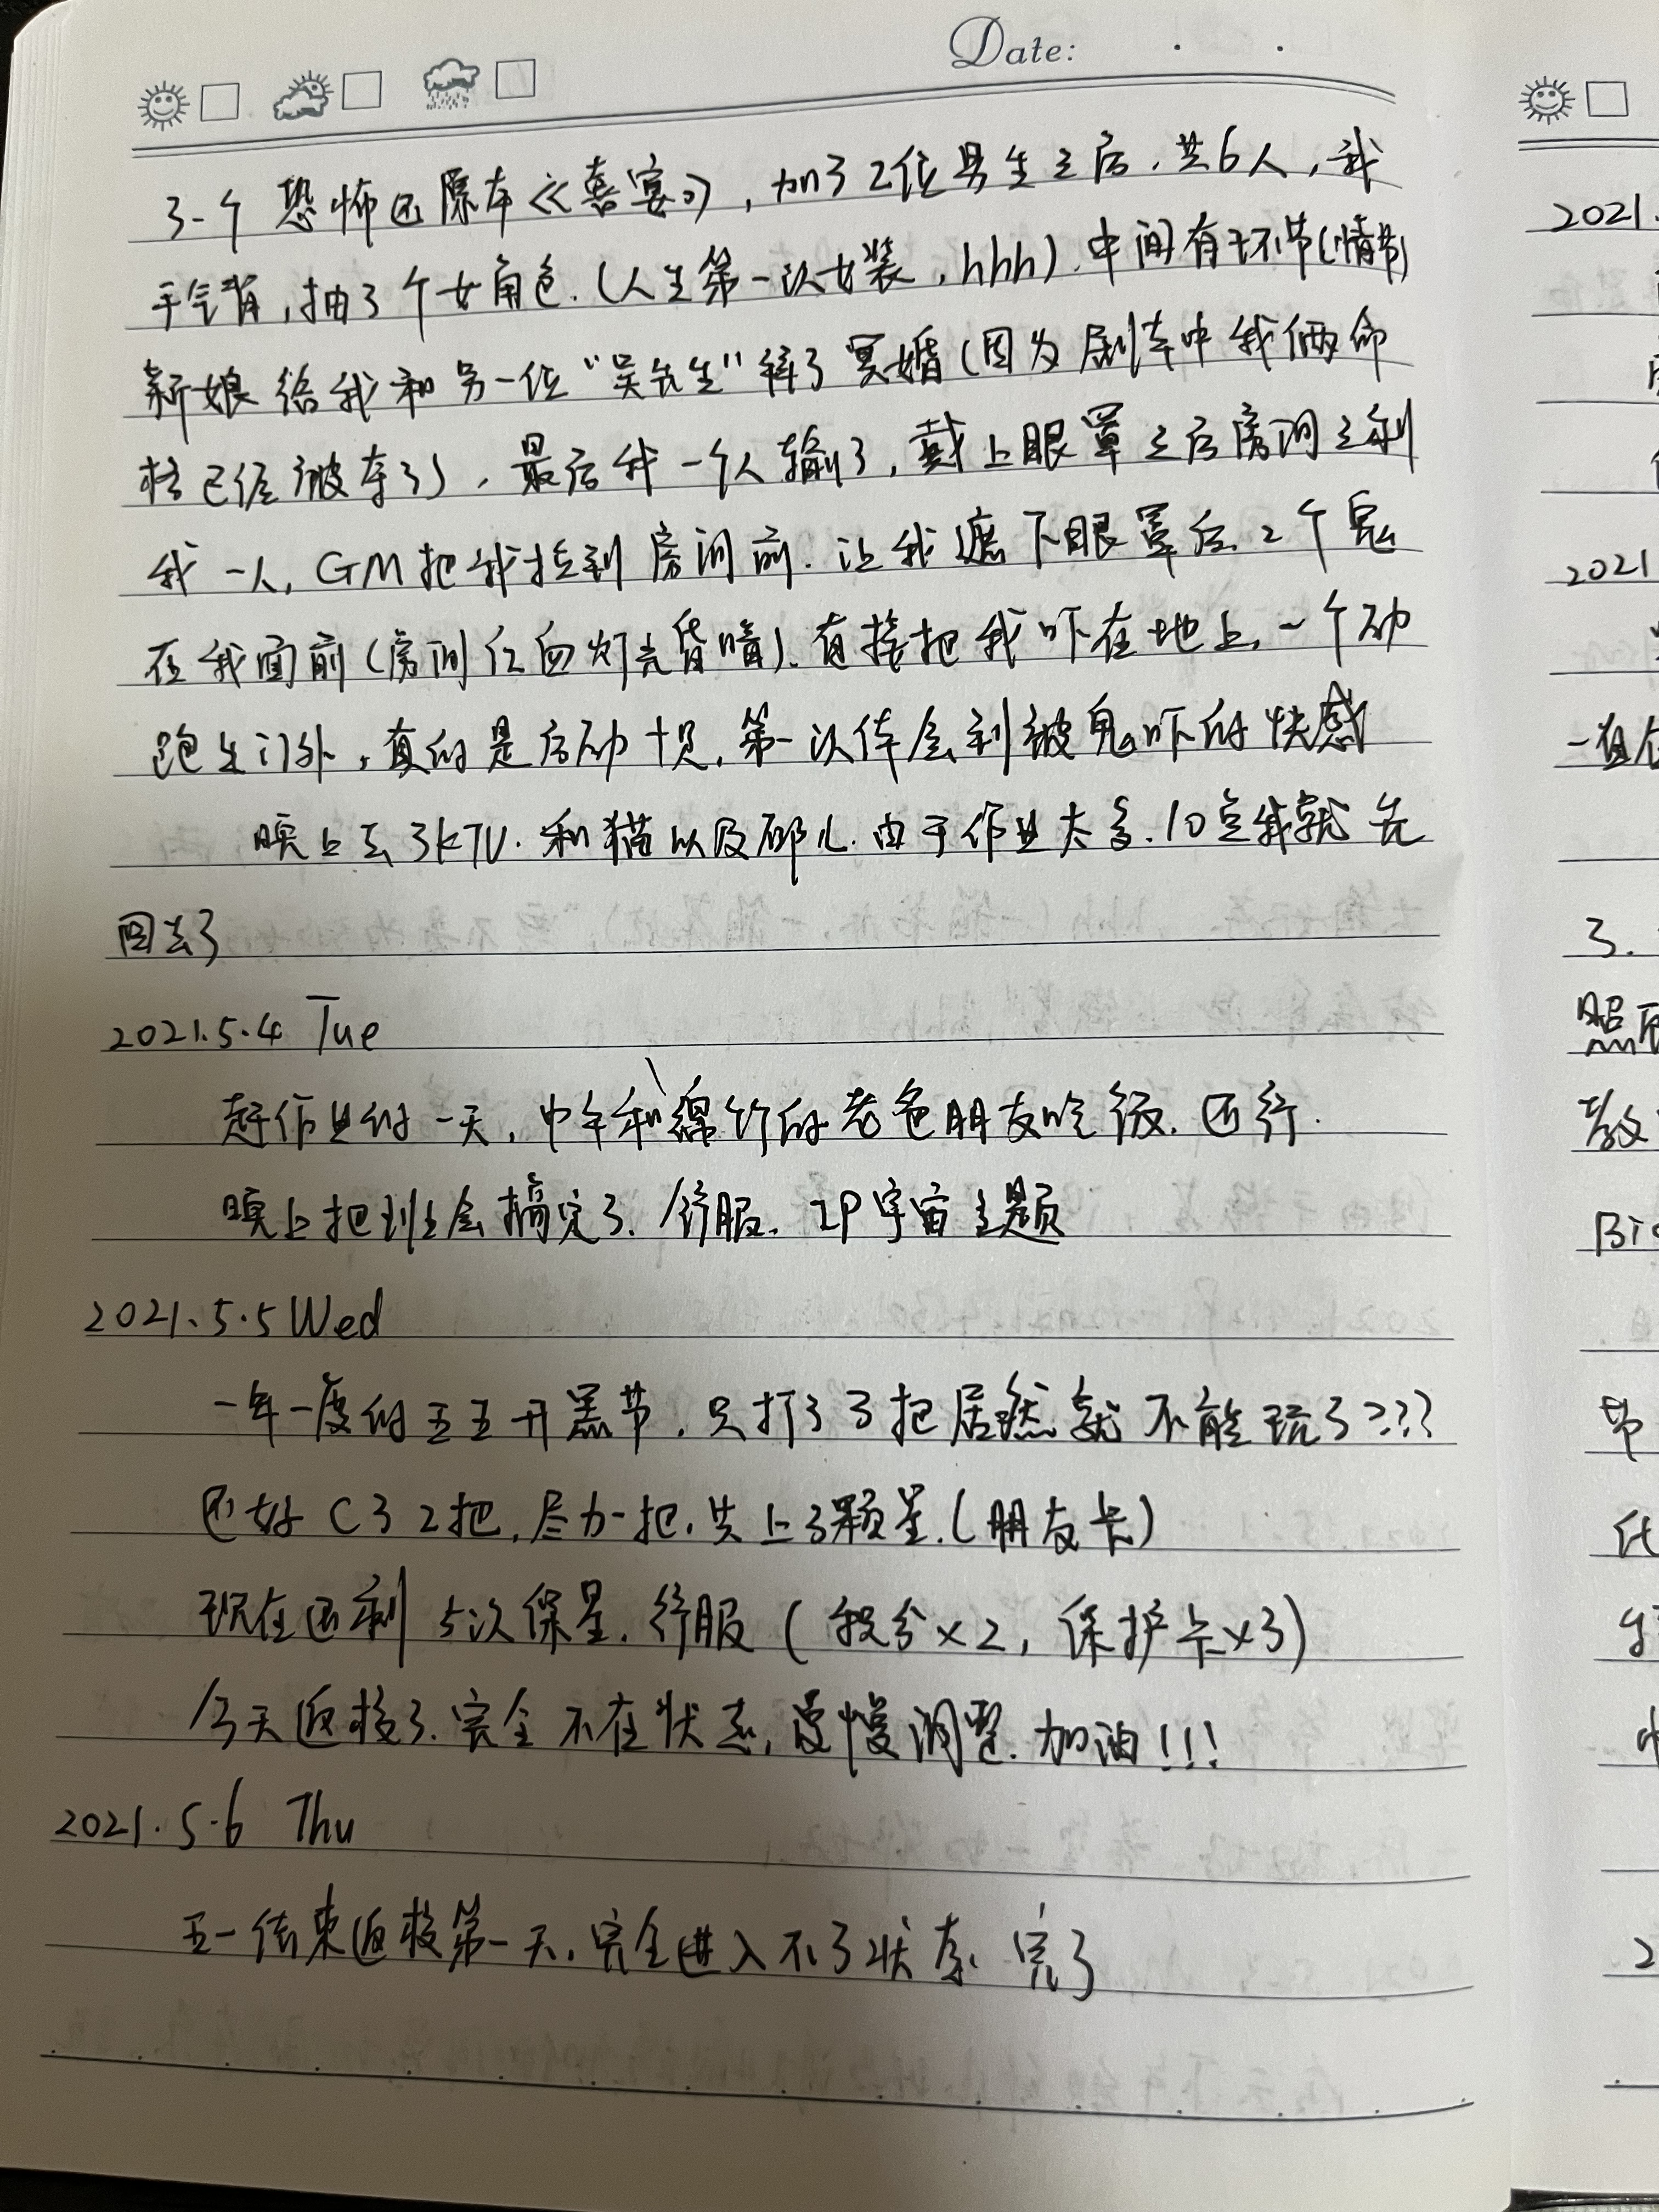 Date:
了一个恐怖还原本《囍宴》,加了2位男生之后,共6人,我
手气背,抽了个女角色.(人生第一次女装,hhh).中间有环节(情节)
新娘给我和另一位“吴先生”释了冥婚(因为剧本中我俩命
格已经被夺了),最后我一个人输了,戴上眼罩之后房间之剩
我一人,GM把我拉到房间前.让我摘下眼罩后,2个鬼
在我面前(房间红血灯光昏暗).直接把我吓在地上,一个劲
跑出门外,真的是后劲十足,第一次体会到被鬼吓的快感
晚上去了KTV.和猫以及邱儿.由于作业太多.10点我就先
回去了
2021.5.4 Tue
赶作业的一天,中午和绵竹的老色朋友吃饭.还行.
晚上把班会搞定了.舒服.IP宇宙主题
2021.5.5 Wed
一年一度的五五开黑节.只打了3把居然就不能玩了???
还好C了2把,尽力一把.共上3颗星.(朋友卡)
现在还剩5次保星.舒服(积分×2,保护卡×3)
今天返校了.完全不在状态,慢慢调整.加油!!!
2021.5.6 Thu
五一结束返校第一天.完全进入不了状态.完了
2021.
2021
3.
Bio